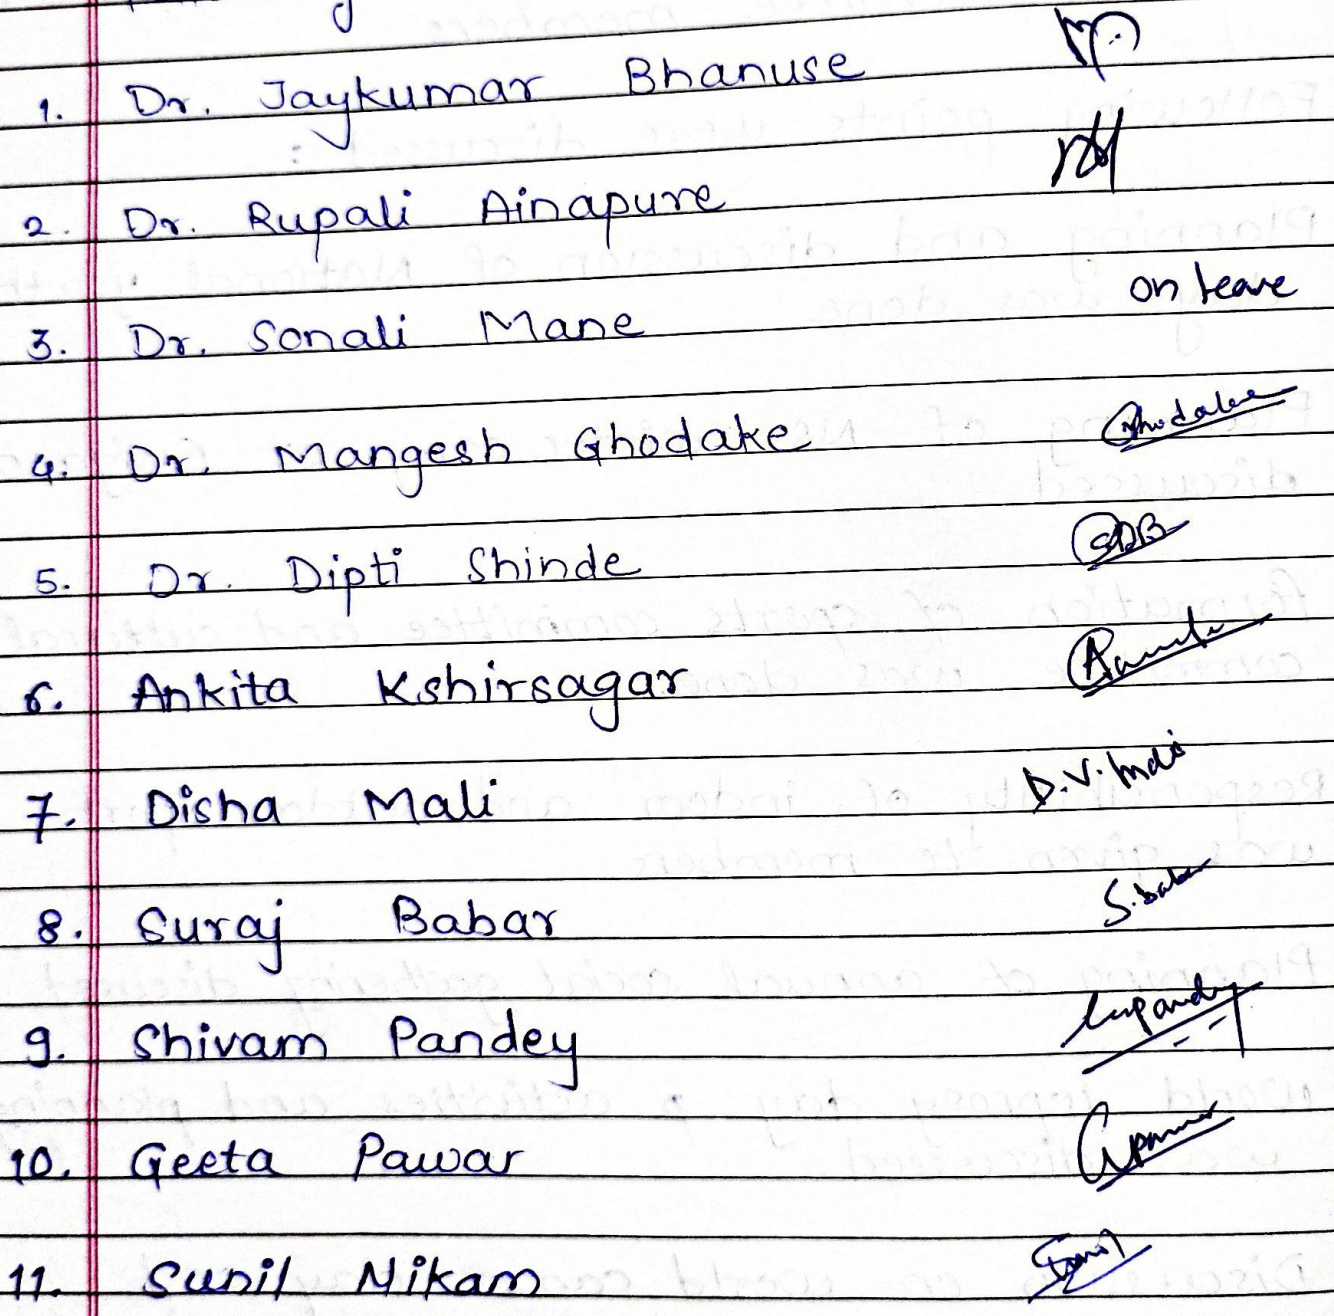 1. Dr. Jaykumar Bhanuse
2. Dr. Rupali Ainapure
3. Dr. Sonali Mane on leave
4. Dr. Mangesh Ghodake Ghodake
5. Dr. Dipti Shinde SDB
6. Ankita Kshirsagar
7. Disha Mali D.V. Mali
8. Suraj Babar S. babar
9. Shivam Pandey
10. Geeta Pawar
11. Sunil Nikam